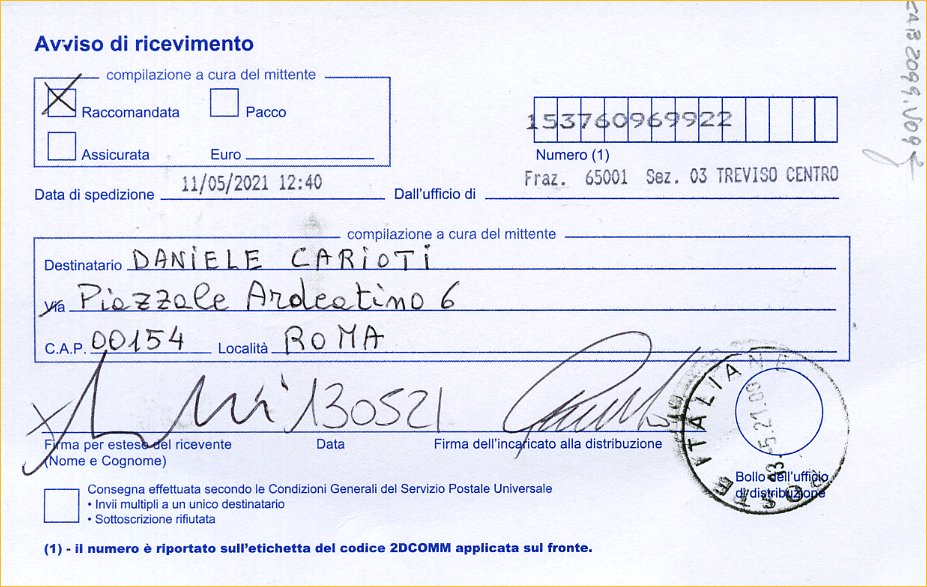 Avviso di ricevimento
compilazione a cura del mittente
Raccomandata Pacco
Assicurata Euro
153760969922
Numero (1)
Data di spedizione 11/05/2021 12:40 Dall'ufficio di Fraz. 65001 Sez. 03 TREVISO CENTRO
compilazione a cura del mittente
Destinatario DANIELE CARIOTI
Via Piazzale Ardeatino 6
C.A.P. 00154 Località ROMA
130521
Firma per esteso del ricevente Data Firma dell'incaricato alla distribuzione
(Nome e Cognome)
POSTE ITALIANE
Bollo dell'ufficio
di distribuzione
Consegna effettuata secondo le Condizioni Generali del Servizio Postale Universale
• Invii multipli a un unico destinatario
• Sottoscrizione rifiutata
(1) - il numero è riportato sull'etichetta del codice 2DCOMM applicata sul fronte.